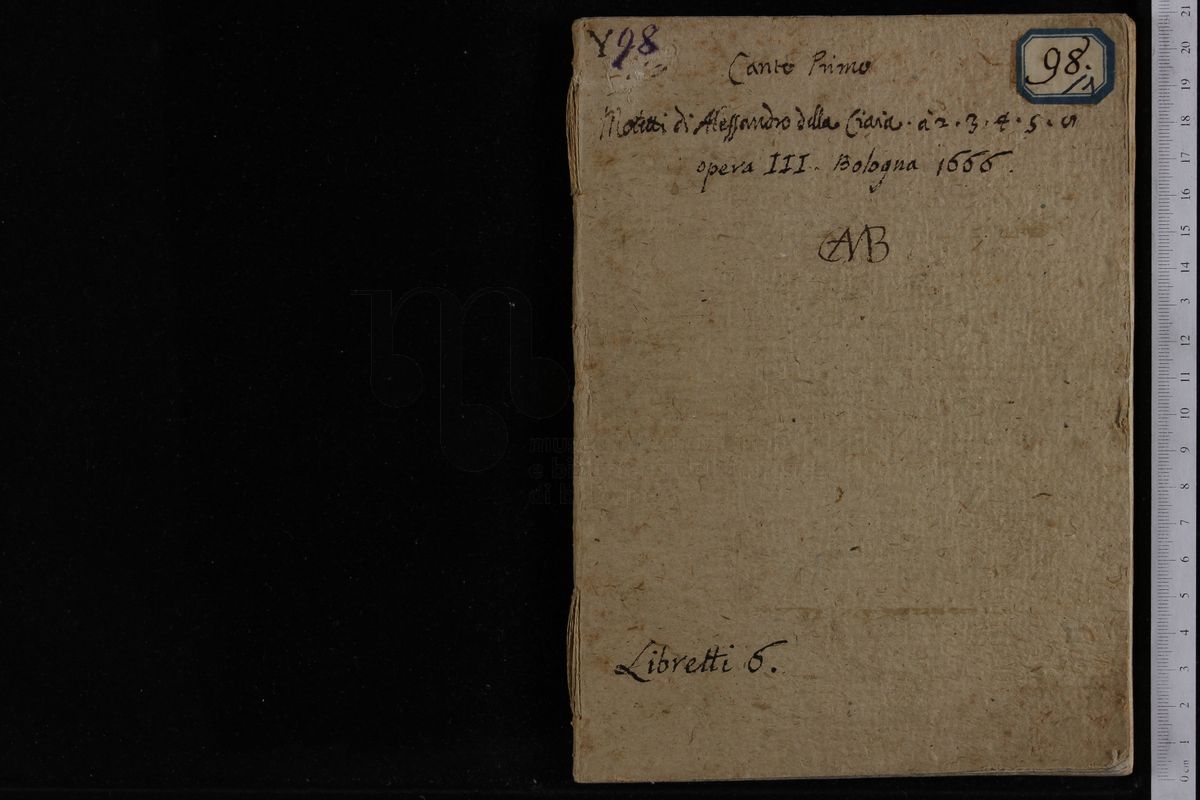 Y98
98.
/1
Canto Primo
Motetti di Alessandro della Ciaia. à 2. 3. 4. 5. 
opera III. Bologna 1666.
AMB
Libretti 6.
0 cm 1 2 3 4 5 6 7 8 9 10 11 12 3 14 15 16 17 18 19 20 21